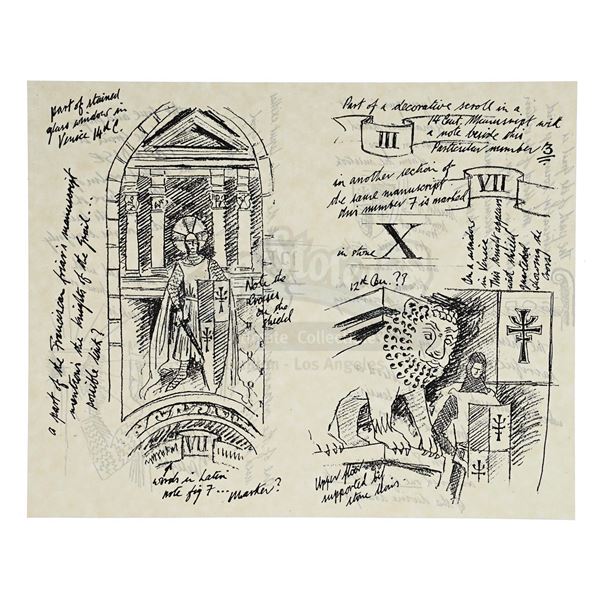 part of stained
glass window in
Venice 14th C.
a part of the Franciscan friar's manuscript
mentions the knights of the Grail....
possible link?
Note the
crosses
on the
shield
VII
words in Latin
note fig 7 ... Marker?
Part of a decorative scroll in a
14 Cent. Manuscript with
a note beside this
Particular number 3
III
in another section of
the same manuscript
this number 7 is marked
VII
in stone X
12th Cen. ??
in a window
in Venice
This knight appears
with shield
quartered
showing the
cross
Upper floor
supported by
stone lions